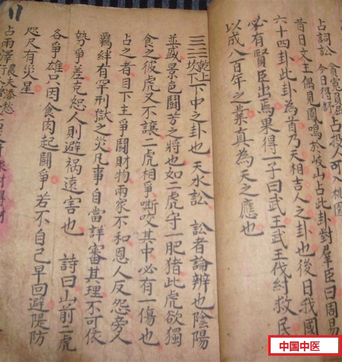 占詞訟
昔日文王偶見鳳鳴於岐山占此卦對羣臣曰周易
六十四卦此卦為首乃天相吉人之卦也後日我國
必有賢臣出焉果得一子曰武王武王伐紂救民
以成八百年之業真為天之應也
乾上坎下下中之卦也 天水訟 訟者論辨也陰陽
並盛景色闘苦之將也如二虎守一肥猪此虎欲獨
食之彼虎又不讓二虎相爭嘶咬其中必有一傷也
占之者目下主爭鬪財物兩家不和恩人反怨旁人
羈絆有罕刑獄之災凡事自當詳審其理不可依
勢爭差克恕人則避禍遠害也 詩曰山前二虎
各爭雄只因食肉起鬪爭若不自己早回避隄防
咫尺有災星
占雨澤
中国中医